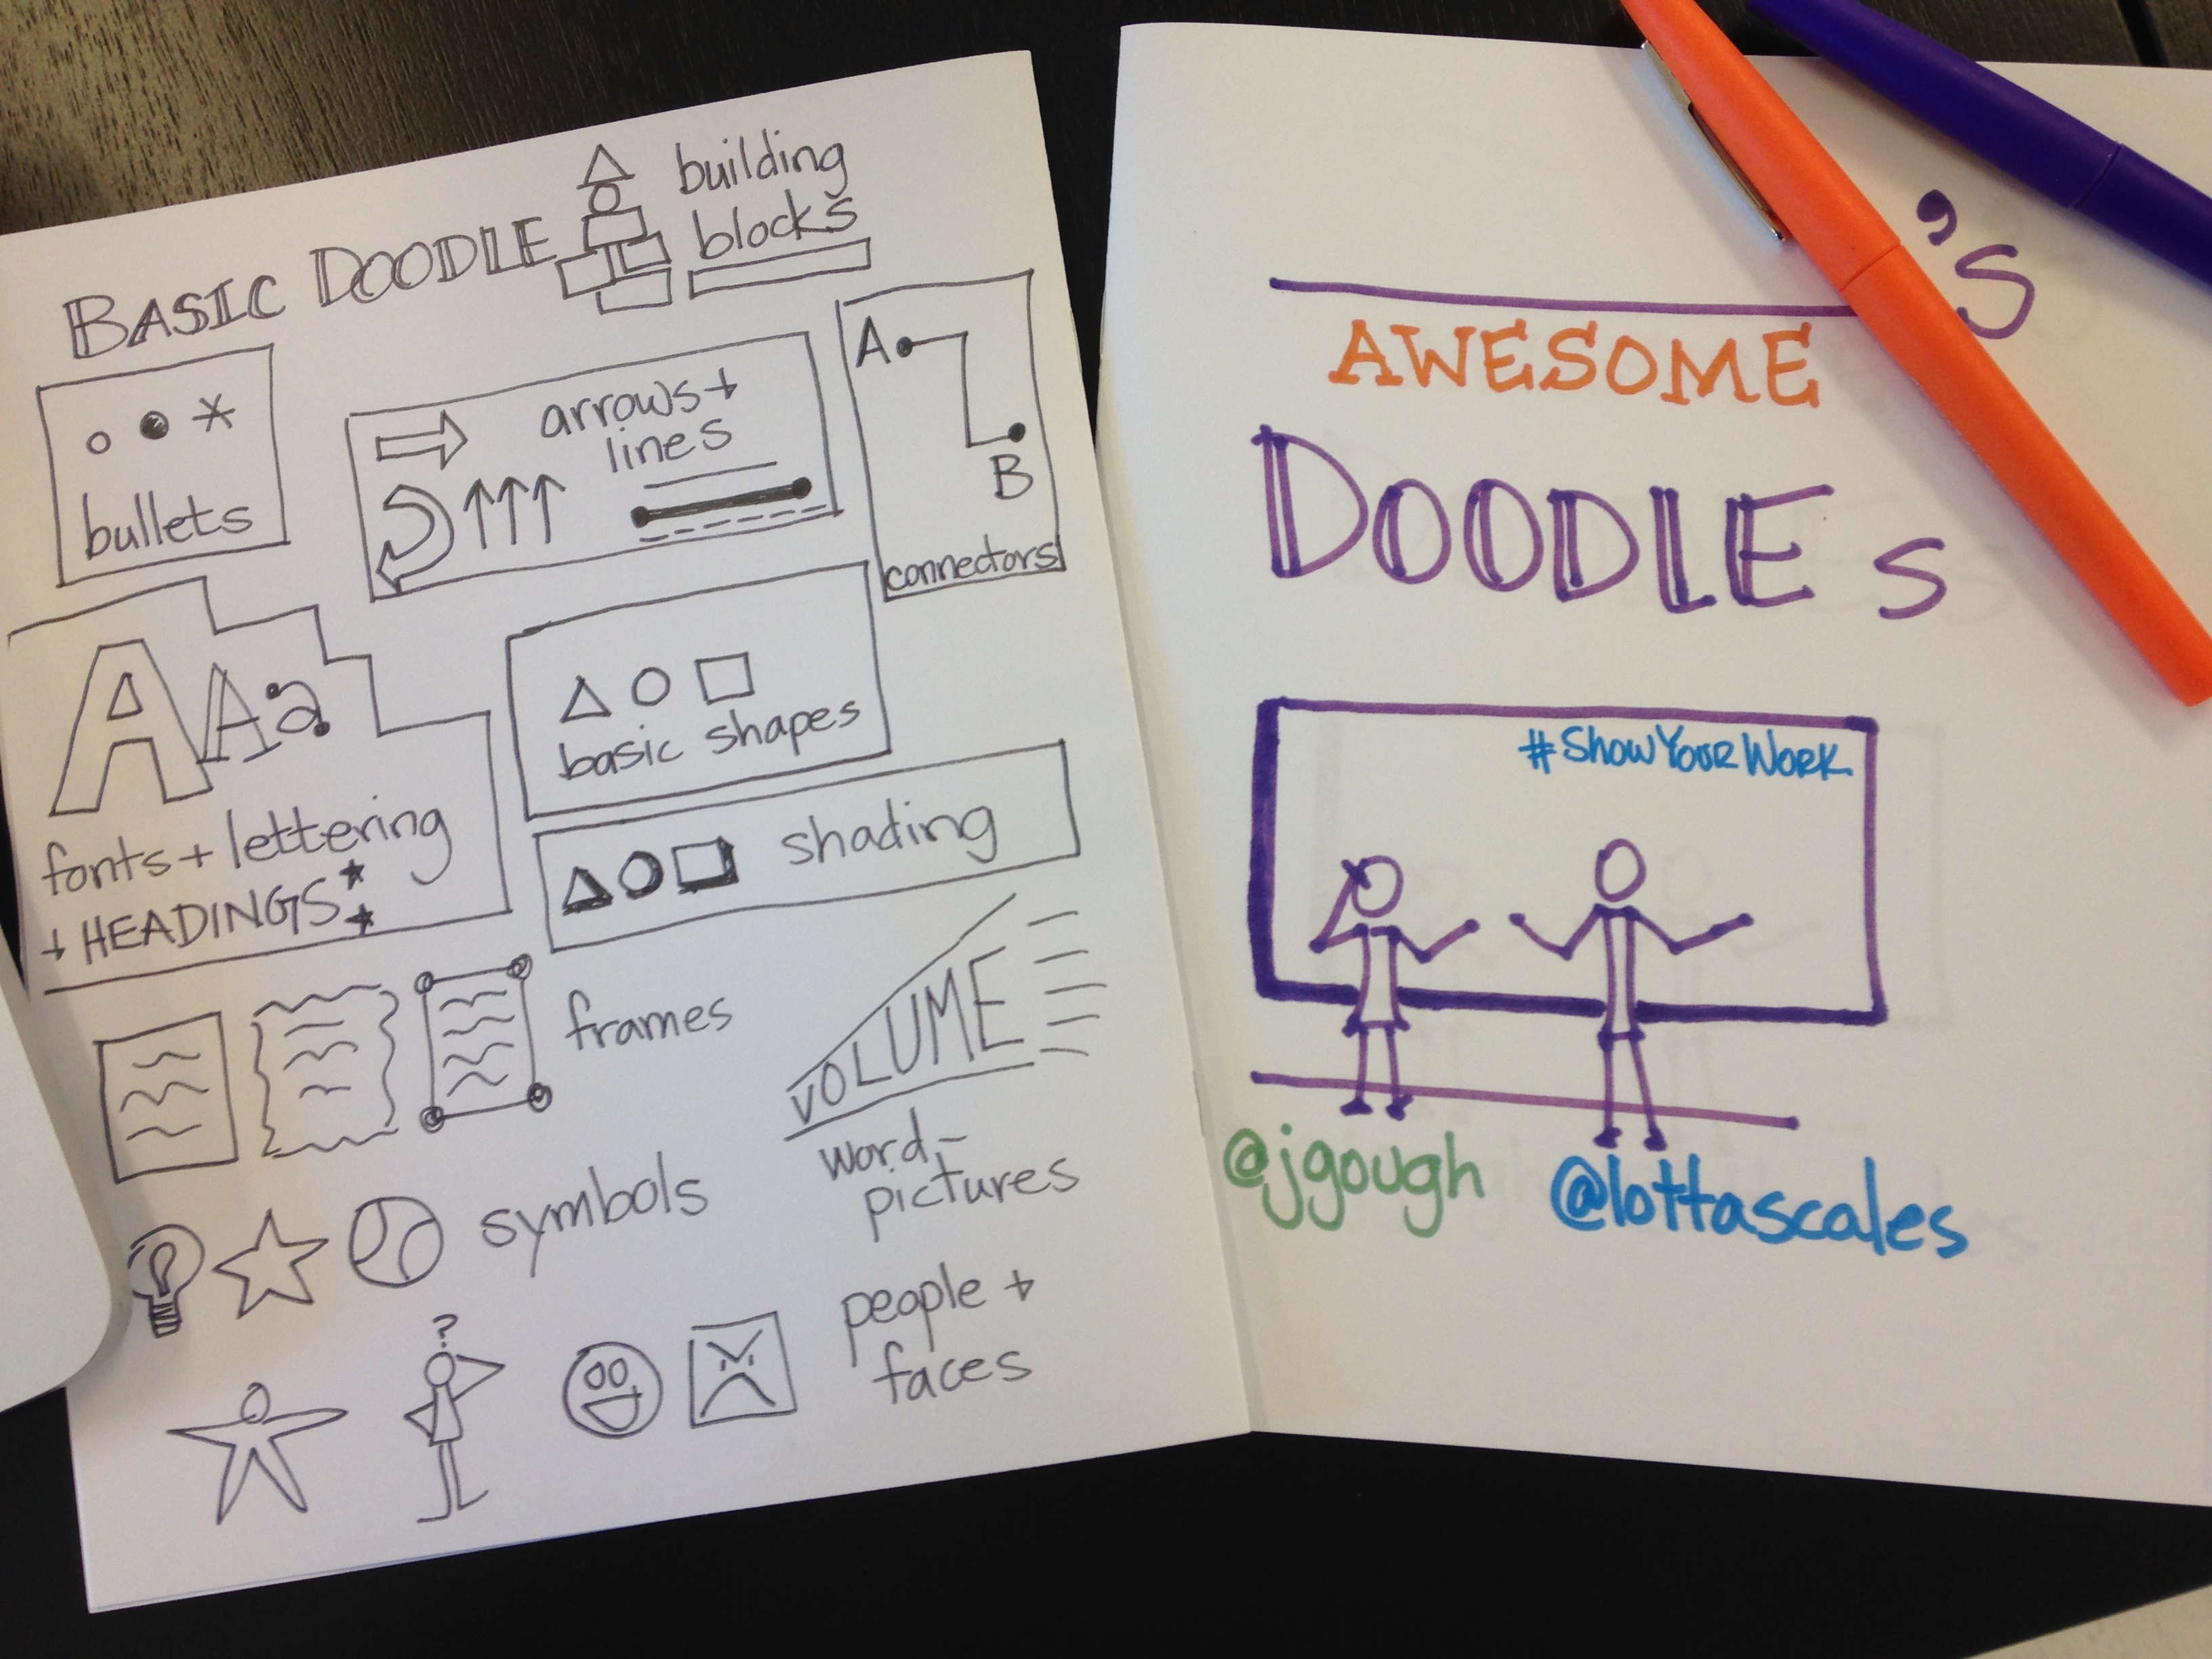 BASIC DOODLE building
blocks
bullets
arrows +
lines
A
B
connectors
A A a
fonts + lettering
+ HEADINGS
basic shapes
shading
frames
VOLUME
word-
pictures
symbols
?
people +
faces
's
AWESOME
DOODLEs
#ShowYourWork
@jgough
@lottascales